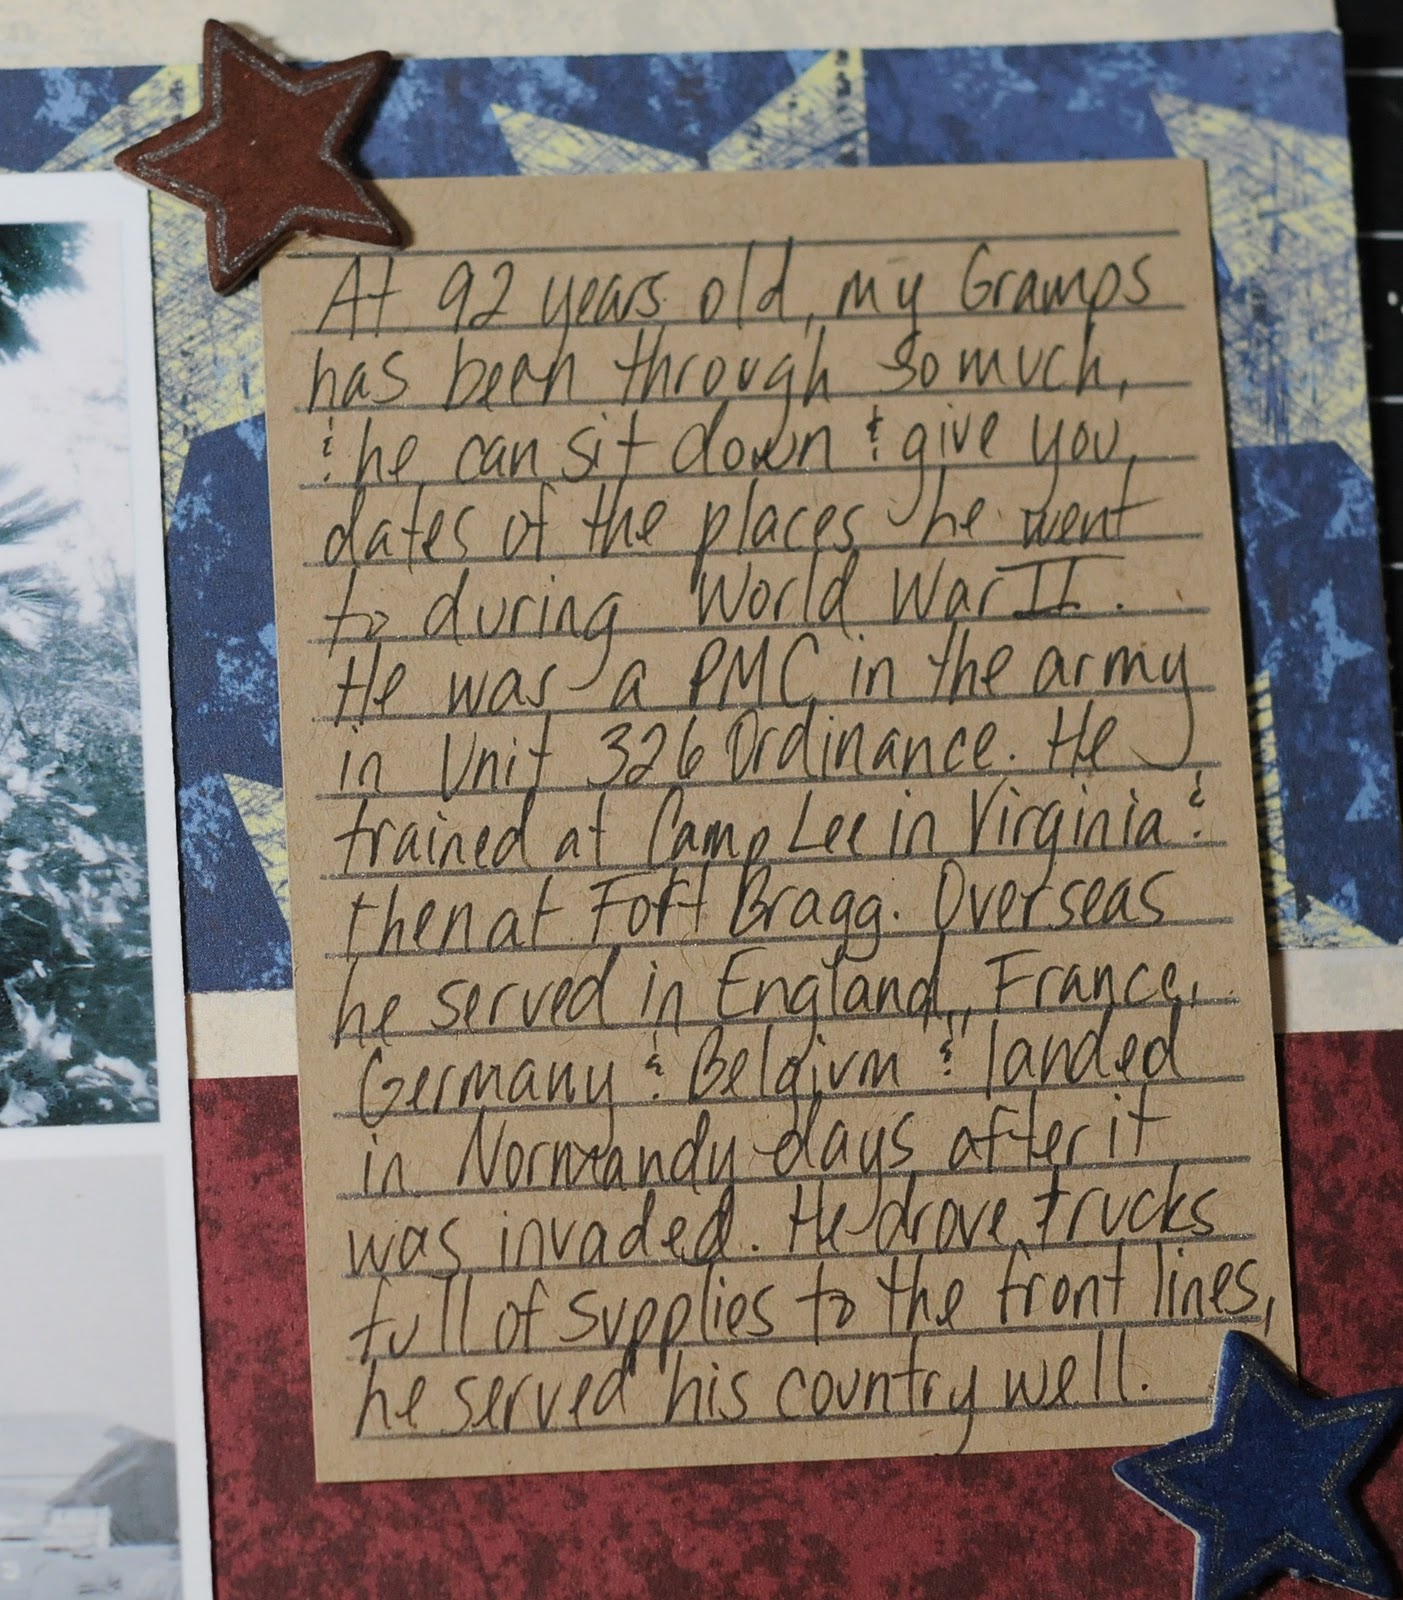 At 92 years old, my Gramps
has been through so much,
& he can sit down & give you
dates of the places he went
to during World War II.
He was a PMC in the army
in Unit 326 Ordinance. He
trained at Camp Lee in Virginia &
then at Fort Bragg. Overseas
he served in England, France,
Germany & Belgium & landed
in Normandy days after it
was invaded. He drove trucks
full of supplies to the front lines,
he served his country well.